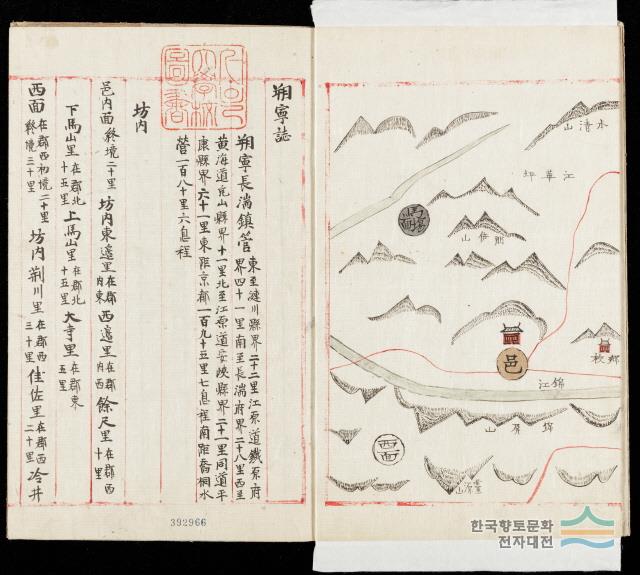 朔寧誌
朔寧長湍鎮管 東至漣川縣界二十二里江原道鐵原府
界四十一里南至長湍府界二十八里西至
黃海道兎山縣界十一里北至江原道安峽縣界二十一里同道平
康縣界六十一里東距京都一百九十五里七息程南距喬桐水
營一百八十里六息程
坊內
邑內面終境二十里 坊內東邊里在郡內東 西邊里在郡內西 餘尺里在郡西十里
下馬山里在郡北十五里 上馬山里在郡北十五里 大寺里在郡東五里
西面在郡西初境二十里終境三十里 坊內荊川里在郡西三十里 佳佐里在郡西二十里 冷井
392966
水清山
江華坪
山
邑
鄉校
錦江
錦屏山
西面
한국향토문화
전자대전